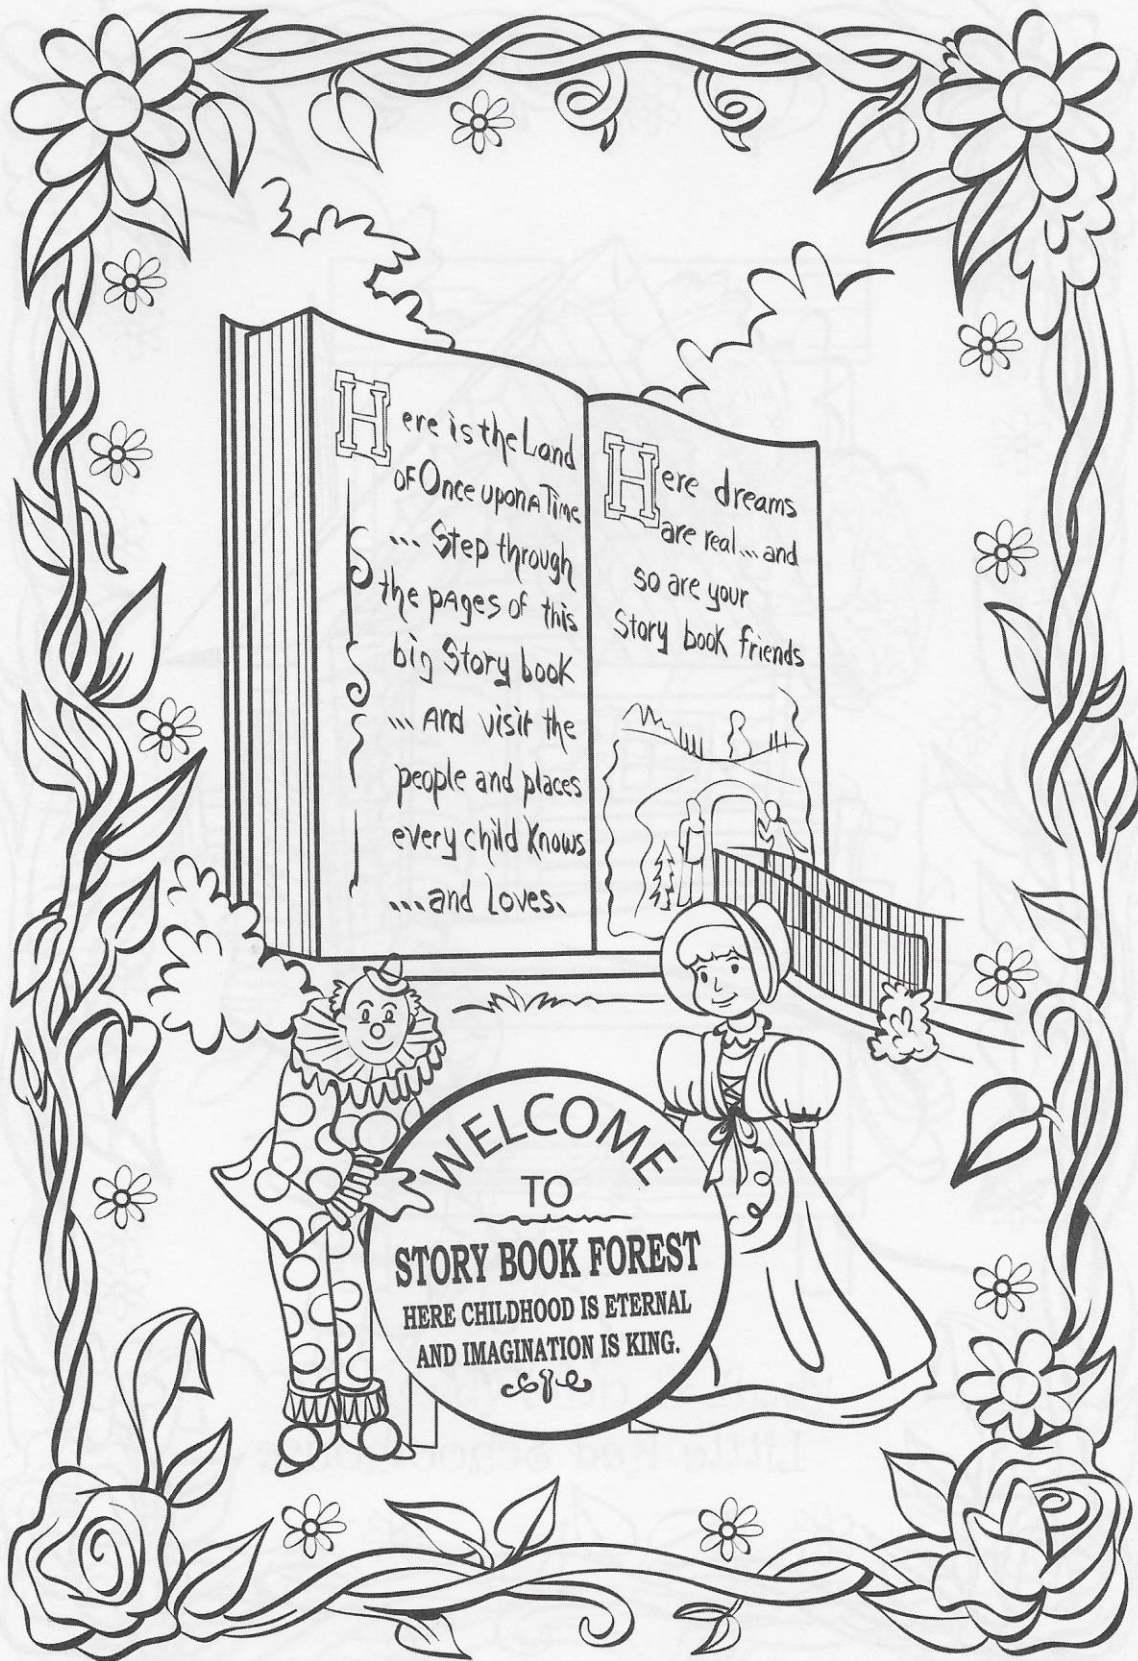 Here is the Land
of Once upon A Time
... Step through
the pages of this
big Story book
... And visit the
people and places
every child knows
...and Loves.
Here dreams
are real... and
so are your
Story book friends
WELCOME
TO
STORY BOOK FOREST
HERE CHILDHOOD IS ETERNAL
AND IMAGINATION IS KING.